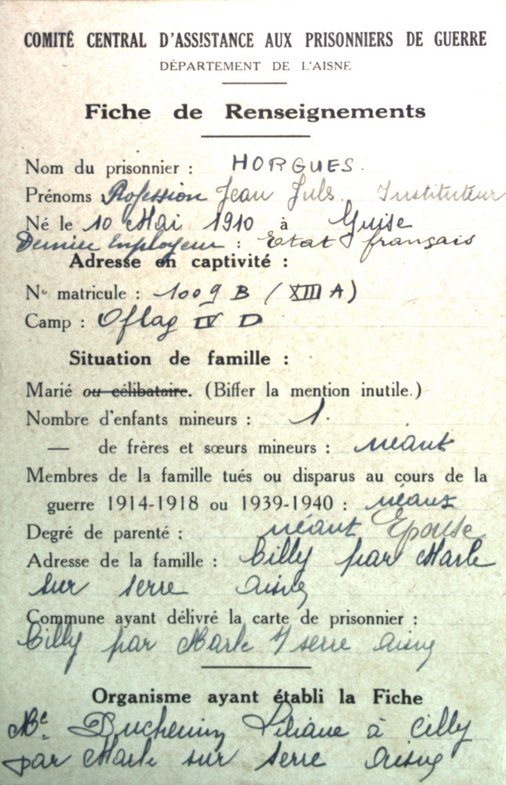 COMITÉ CENTRAL D'ASSISTANCE AUX PRISONNIERS DE GUERRE
DÉPARTEMENT DE L'AISNE
Fiche de Renseignements
Nom du prisonnier : HORGUES.
Prénoms Profession Jean Juls. Instituteur
Né le 10 Mai 1910 à Guise
Dernier Employeur : Etat français
Adresse en captivité :
N° matricule : 1009 B (XIII A)
Camp : Oflag IV D
Situation de famille :
Marié ou célibataire. (Biffer la mention inutile.)
Nombre d'enfants mineurs : 1.
— de frères et sœurs mineurs : néant
Membres de la famille tués ou disparus au cours de la
guerre 1914-1918 ou 1939-1940 : néant
Degré de parenté : néant Epouse
Adresse de la famille : Cilly par Marle
sur serre Aisne
Commune ayant délivré la carte de prisonnier :
Cilly par Marle s/ serre Aisne
Organisme ayant établi la Fiche
Me Liliane à Cilly
par Marle sur serre Aisne